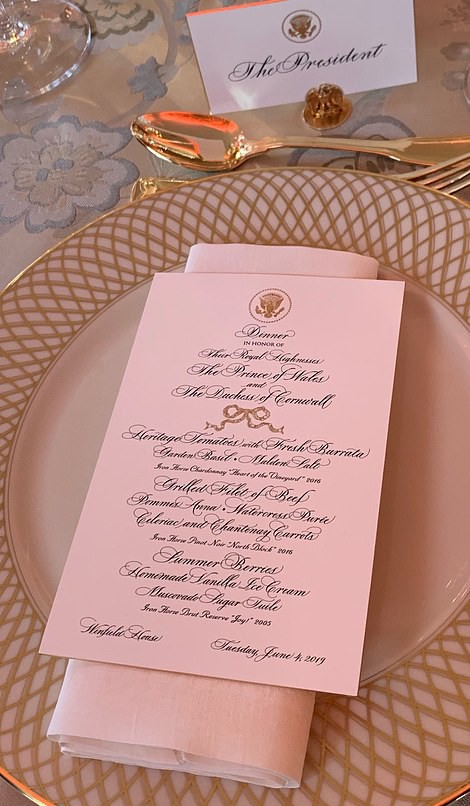 The President
Dinner
IN HONOR OF
Their Royal Highnesses
The Prince of Wales
and
The Duchess of Cornwall
Heritage Tomatoes with Fresh Burrata
Garden Basil • Maldon Salt
Iron Horse Chardonnay "Heart of the Vineyard" 2016
Grilled Filet of Beef
Pommes Anna • Watercress Purée
Celeriac and Chantenay Carrots
Iron Horse Pinot Noir "North Block" 2016
Summer Berries
Homemade Vanilla Ice Cream
Muscovado Sugar Tuile
Iron Horse Brut Reserve "Joy!" 2005
Winfield House
Tuesday, June 4, 2019